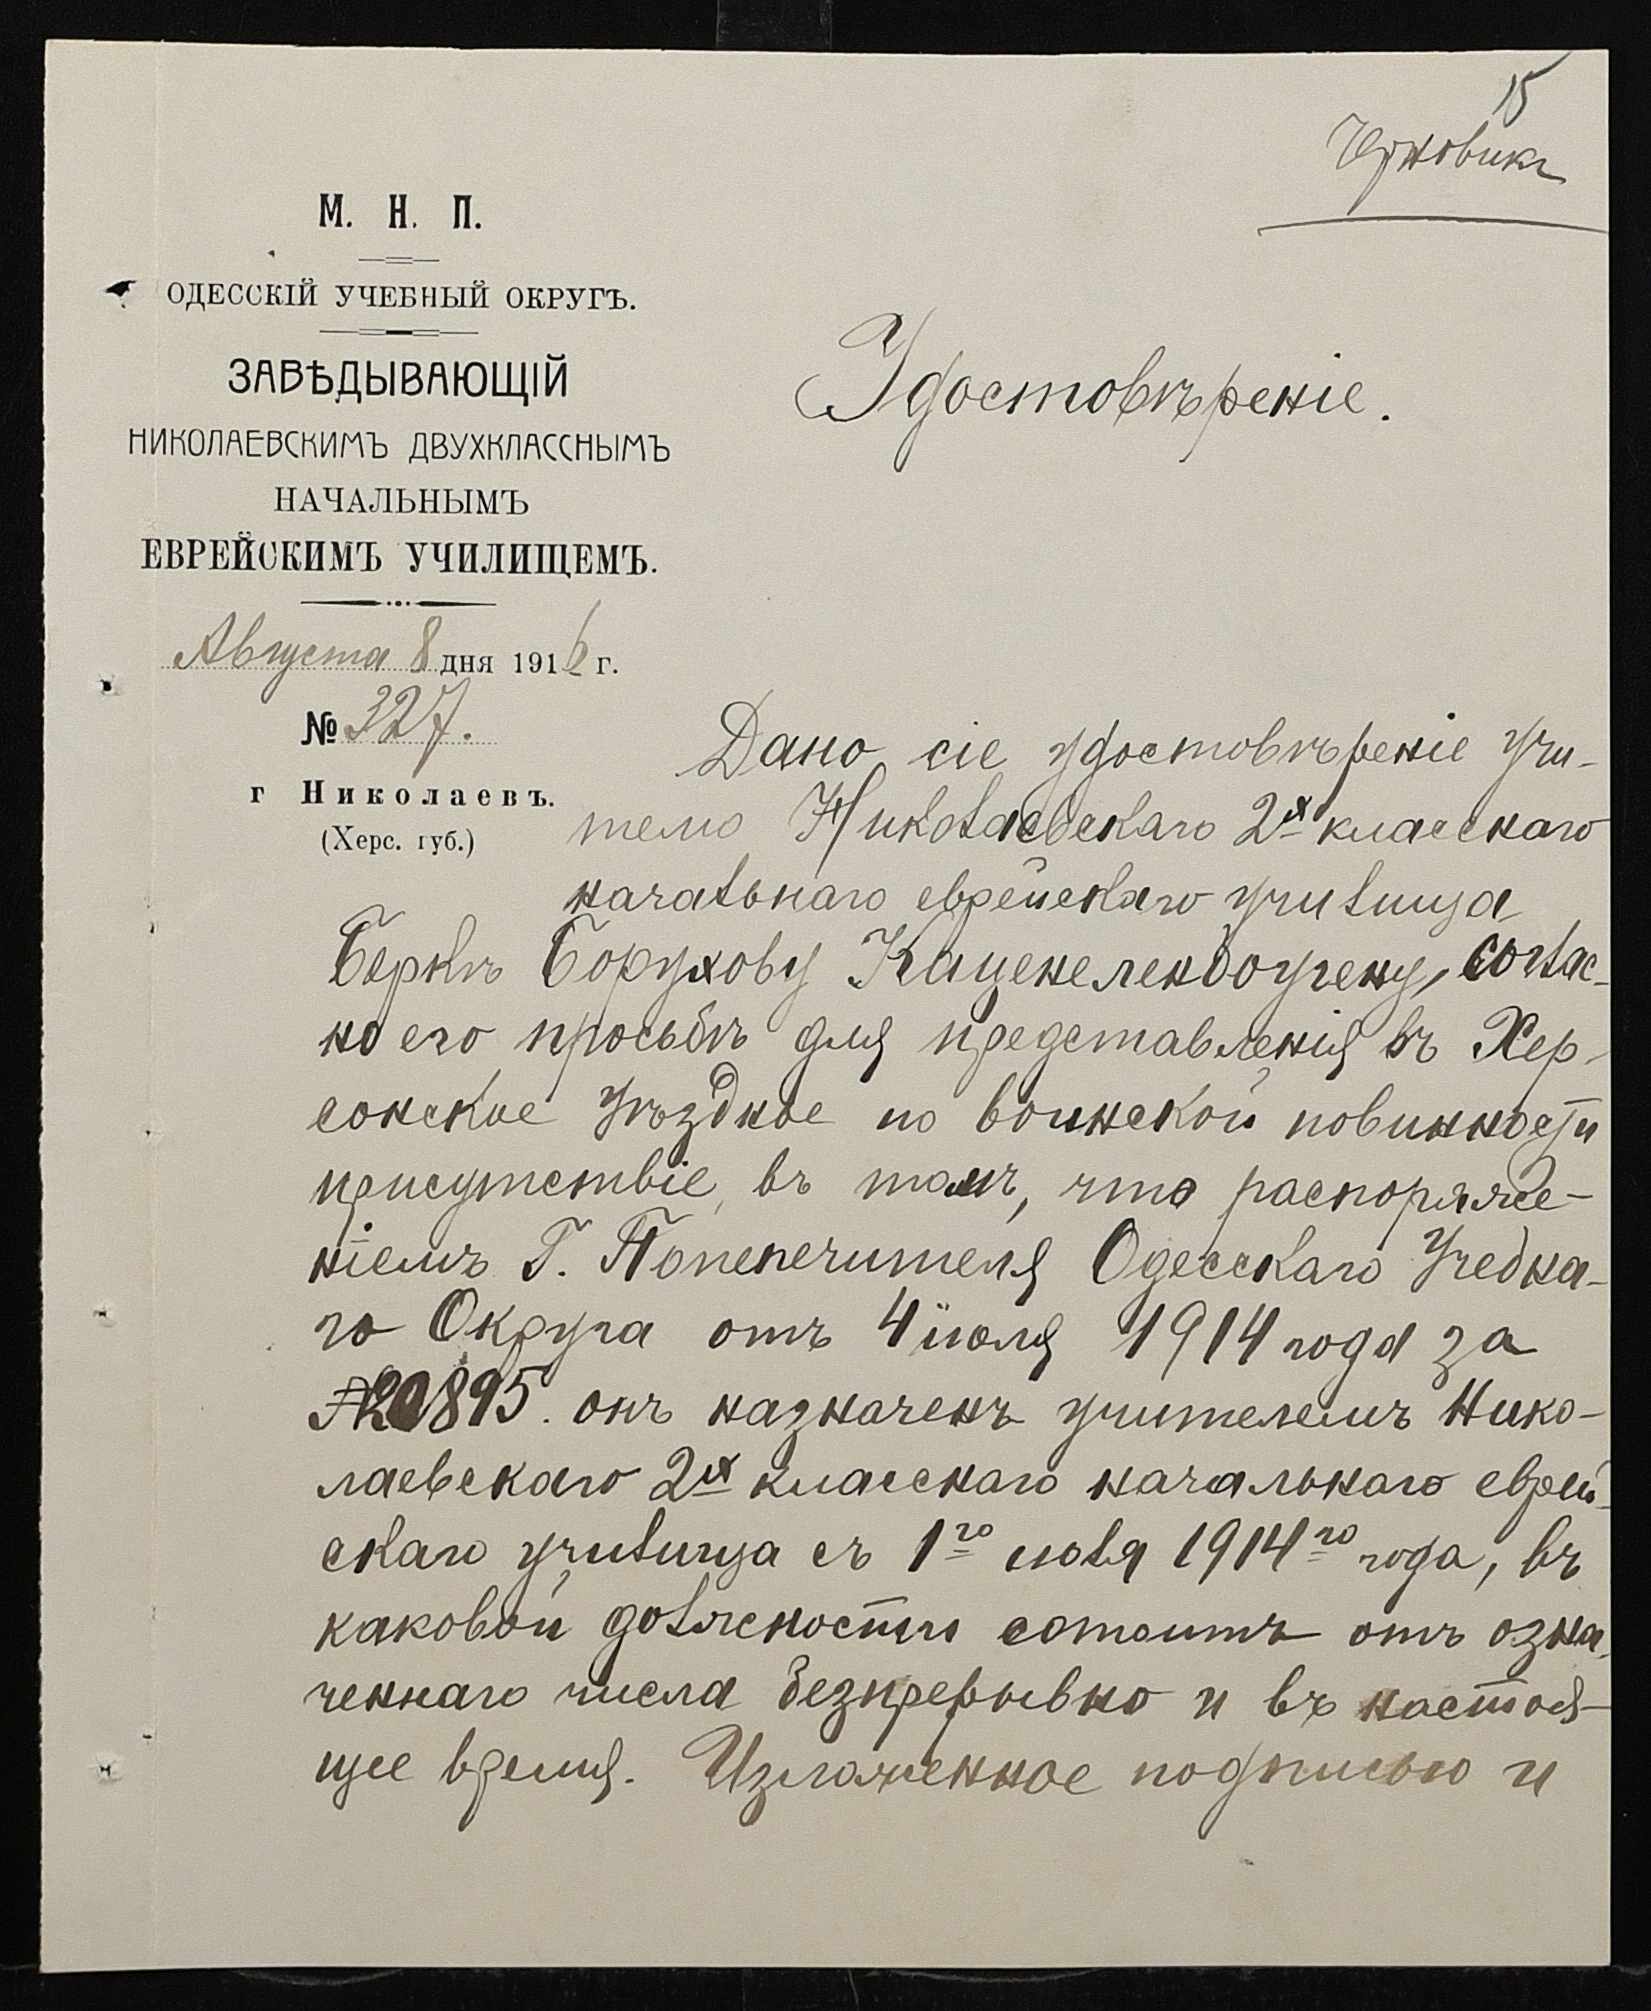 15
Черновикъ
М. Н. П.
ОДЕССКІЙ УЧЕБНЫЙ ОКРУГЪ.
ЗАВѢДЫВАЮЩІЙ
НИКОЛАЕВСКИМЪ ДВУХКЛАССНЫМЪ
НАЧАЛЬНЫМЪ
ЕВРЕЙСКИМЪ УЧИЛИЩЕМЪ.
Августа 8 дня 1916 г.
№ 327.
г Николаевъ.
(Херс. губ.)
Удостовѣреніе.
Дано сіе удостовѣреніе учи-
телю Николаевскаго 2х классnаго
начальнаго еврейскаго училища
Беркѣ Борухову Каценеленбоугену, соглас-
но его просьбѣ для представленія въ Хер-
сонское уѣздное по воинской повинности
присутствіе, въ томъ, что распоряже-
ніемъ Г. Попечителя Одесскаго Учебна-
го Округа отъ 4 іюля 1914 года за
№ 20895. онъ назначенъ учителемъ Нико-
лаевскаго 2х класснаго начальнаго еврей-
скаго училища съ 1го іюля 1914го года, въ
каковой должности состоитъ отъ озна-
ченнаго числа безпрерывно и въ настоя-
щее время. Изложенное подписью и